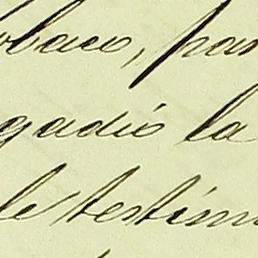 baco, par
gadió la
le testim